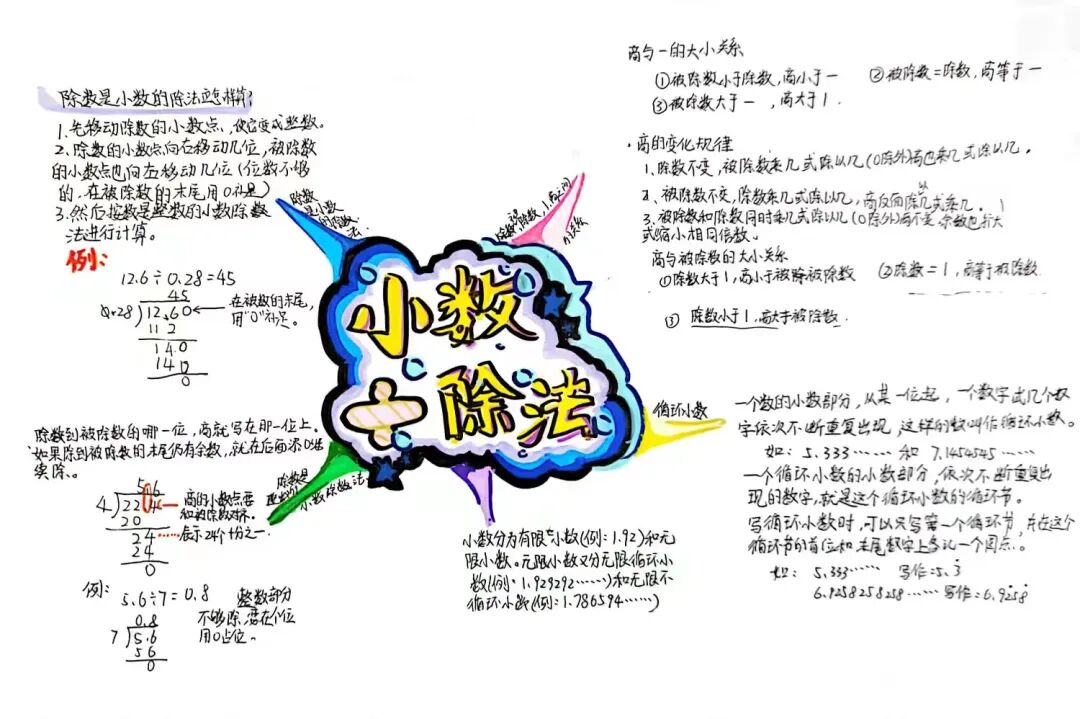 除数是小数的除法怎样算:
1.先移动除数的小数点,使它变成整数。
2.除数的小数点向右移动几位,被除数
的小数点也向右移动几位(位数不够
的,在被除数的末尾用0补足)
3.然后按数是整数的小数除数
法进行计算。
例:
12.6÷0.28=45
45
0.28 12.60
在被数的末尾,
用"0"补足。
11 2
1 4 0
1 4 0
0
除数到被除数的哪一位,商就写在那一位上。
如果除到被除数的末尾仍有余数,就在后面添0继
续除。
5.6
4 22.4
商的小数点要
和被除数对齐。
20
24
表示24个十分之一
24
0
例:
5.6÷7=0.8
整数部分
不够除,要在个位
用0占位。
0.8
7 5.6
5 6
0
除数
是小数
小数除数法
小数
除法
循环小数
小数分为有限小数(例:1.92)和无
限小数。无限小数又分无限循环小
数(例:1.929292……)和无限不
循环小数(例:1.786594……)
商与一的大小关系
①被除数小于除数,商小于一
②被除数=除数,商等于一
③被除数大于一 ,商大于1.
·商的变化规律
1.除数不变,被除数乘几或除以几(0除外)商也乘几或除以几。
2.被除数不变,除数乘几或除以几,商反而除以几或乘几。
3.被除数和除数同时乘几或除以几(0除外)商不变,余数也扩大
或缩小相同倍数。
商与被除数的大小关系
①除数大于1,商小于被除被除数
②除数=1,商等于被除数
③ 除数小于1,商大于被除数.
一个数的小数部分,从某一位起,一个数字或几个数
字依次不断重复出现,这样的数叫作循环小数。
如:5.333…… 和 7.1454545……
一个循环小数的小数部分,依次不断重复出
现的数字,就是这个循环小数的循环节。
写循环小数时,可以只写第一个循环节,并在这个
循环节的首位和末尾数字上各记一个圆点。
如: 5.333…… 写作:5.3̇
6.9258258258…… 写作:6.9̇258̇